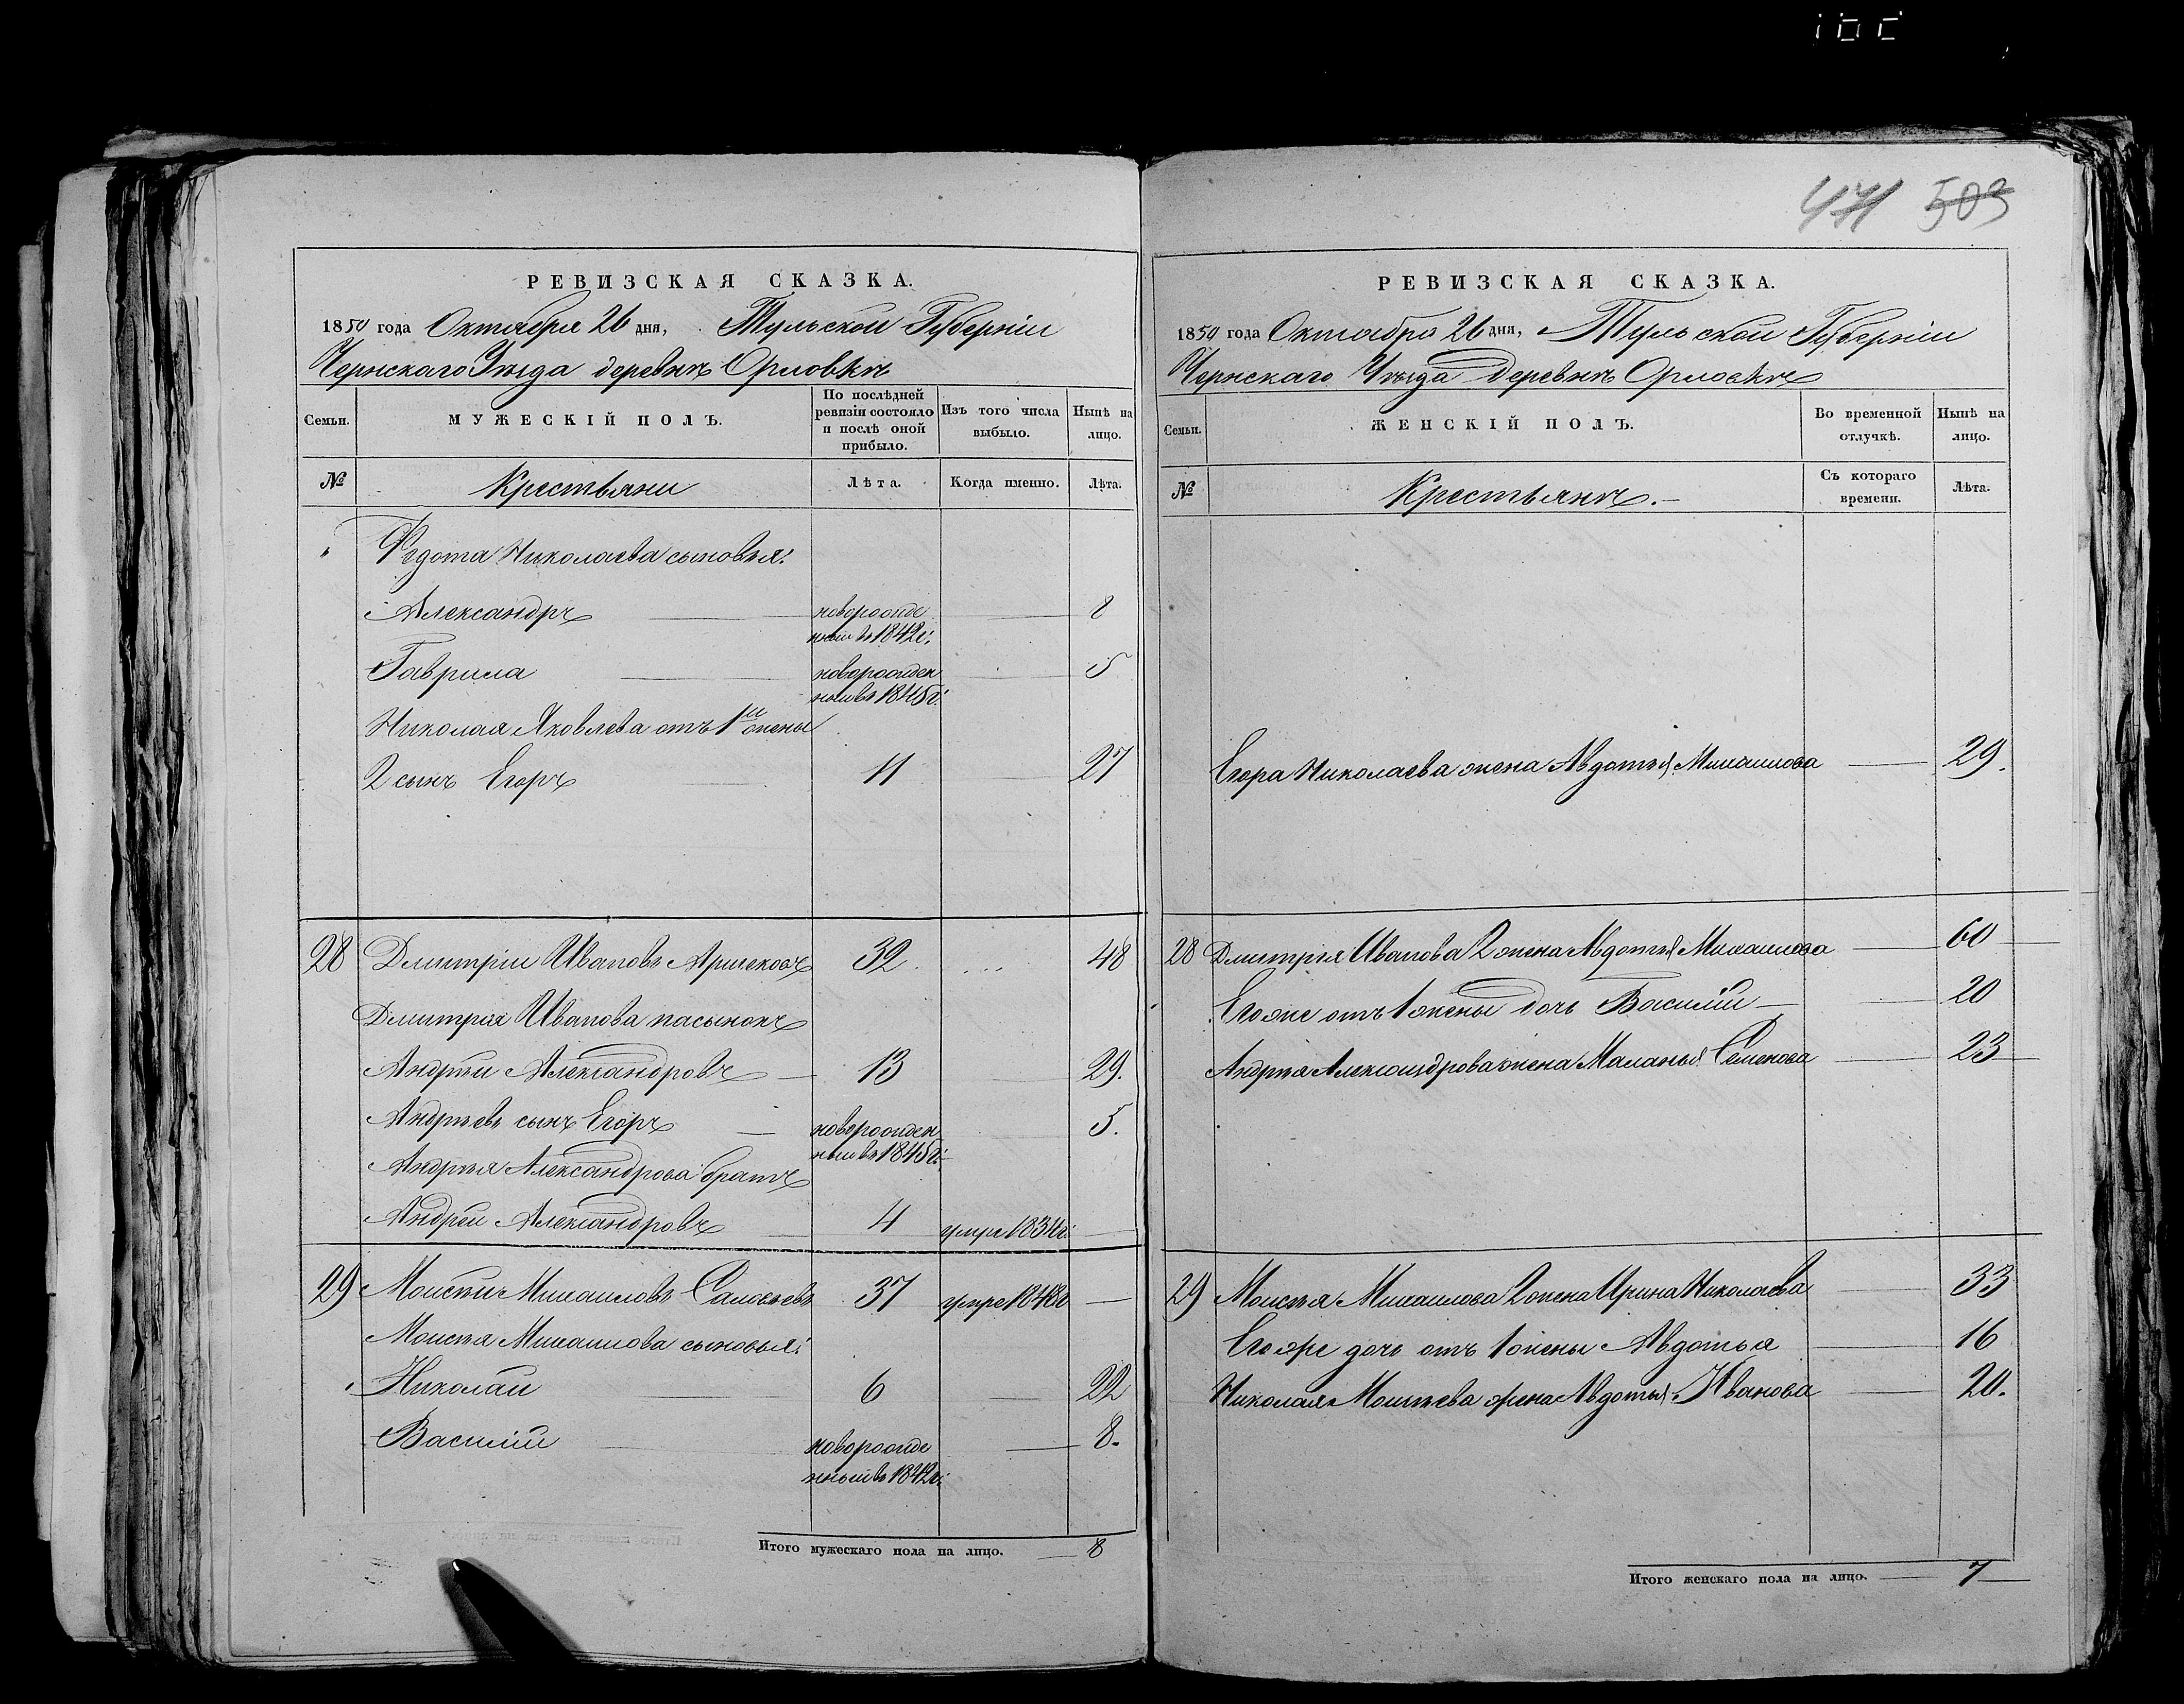 471 503
РЕВИЗСКАЯ СКАЗКА.
1850 года Октября 26 дня, Тульской Губерніи
Чернскаго Уѣзда деревнѣ Орловкѣ
Семьи.
МУЖЕСКІЙ ПОЛЪ.
По послѣдней ревизіи состояло и послѣ оной прибыло.
Изъ того числа выбыло.
Нынѣ на лицо.
№
Крестьяни
Лѣта.
Когда именно.
Лѣта.
Федота Николаева сыновья:
Александръ новорожде 8
нный въ 1842г:
Гаврила новорожден 5
ный въ 1845г:
Николая Яковлева отъ 1й жены
2 сынъ Егоръ 11 27
28 Дмитрій Ивановъ 32 48
Дмитрія Иванова пасынокъ
Андрѣй Александровъ 13 29.
Андрѣевъ сынъ Егоръ новорожден 5.
ный въ 1845г:
Андрѣя Александрова братъ
Андрей Александровъ 4 умре 1834г:
29 Моисѣй Михайловъ 37 умре
Моисѣя Михайлова сыновья:
Николай 6 22
Василій новорожде 8.
нный въ 1842г:
Итого мужескаго пола на лицо. 8
РЕВИЗСКАЯ СКАЗКА.
1850 года Октября 26 дня, Тульской Губерніи
Чернскаго Уѣзда деревнѣ Орловкѣ
Семьи.
ЖЕНСКІЙ ПОЛЪ.
Во временной отлучкѣ.
Нынѣ на лицо.
№
Крестьянѣ.
Съ котораго времени.
Лѣта.
Егора Николаева жена Авдотья Михайлова 29.
28 Дмитрія Иванова 2 жена Авдотья Михайлова 60
Егоже отъ 1 жены дочь 20
Андрѣя Александрова жена Маланья Семенова 23
29 Моисѣя Михайлова 2 жена Ирина Николаева 33
Егоже дочь отъ 1 жены Авдотья 16
Николая Моисѣева жена Авдотья Иванова 20.
Итого женскаго пола на лицо. 7